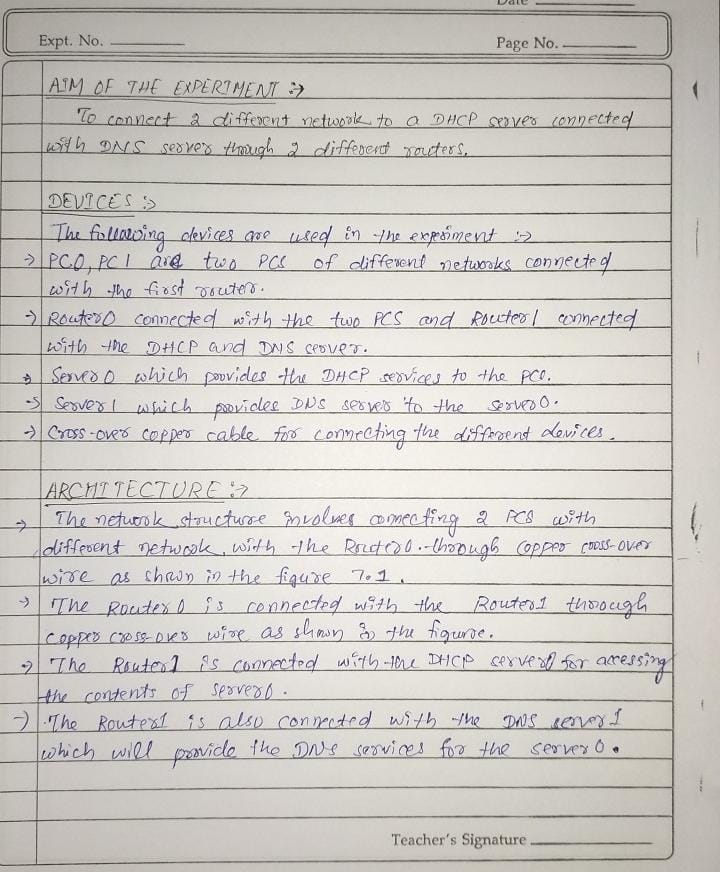 Date
Expt. No.
Page No.
AIM OF THE EXPERIMENT :->
To connect 2 different network to a DHCP server connected
with DNS server through 2 different routers.
DEVICES :->
The following devices are used in the experiment :->
-> PC0, PC1 are two PCS of different networks connected
with the first router.
-> Router0 connected with the two PCS and Router1 connected
with the DHCP and DNS server.
-> Server0 which provides the DHCP services to the PC0.
-> Server1 which provides DNS server to the server0.
-> Cross-over copper cable for connecting the different devices.
ARCHITECTURE :->
-> The network structure involves connecting 2 PCS with
different network, with the Router0 through copper cross-over
wire as shown in the figure 7.1.
-> The Router0 is connected with the Router1 through
copper cross-over wire as shown in the figure.
-> The Router1 is connected with the DHCP server0 for accessing
the contents of server0.
-> The Router1 is also connected with the DNS server1
which will provide the DNS services for the server0.
Teacher's Signature